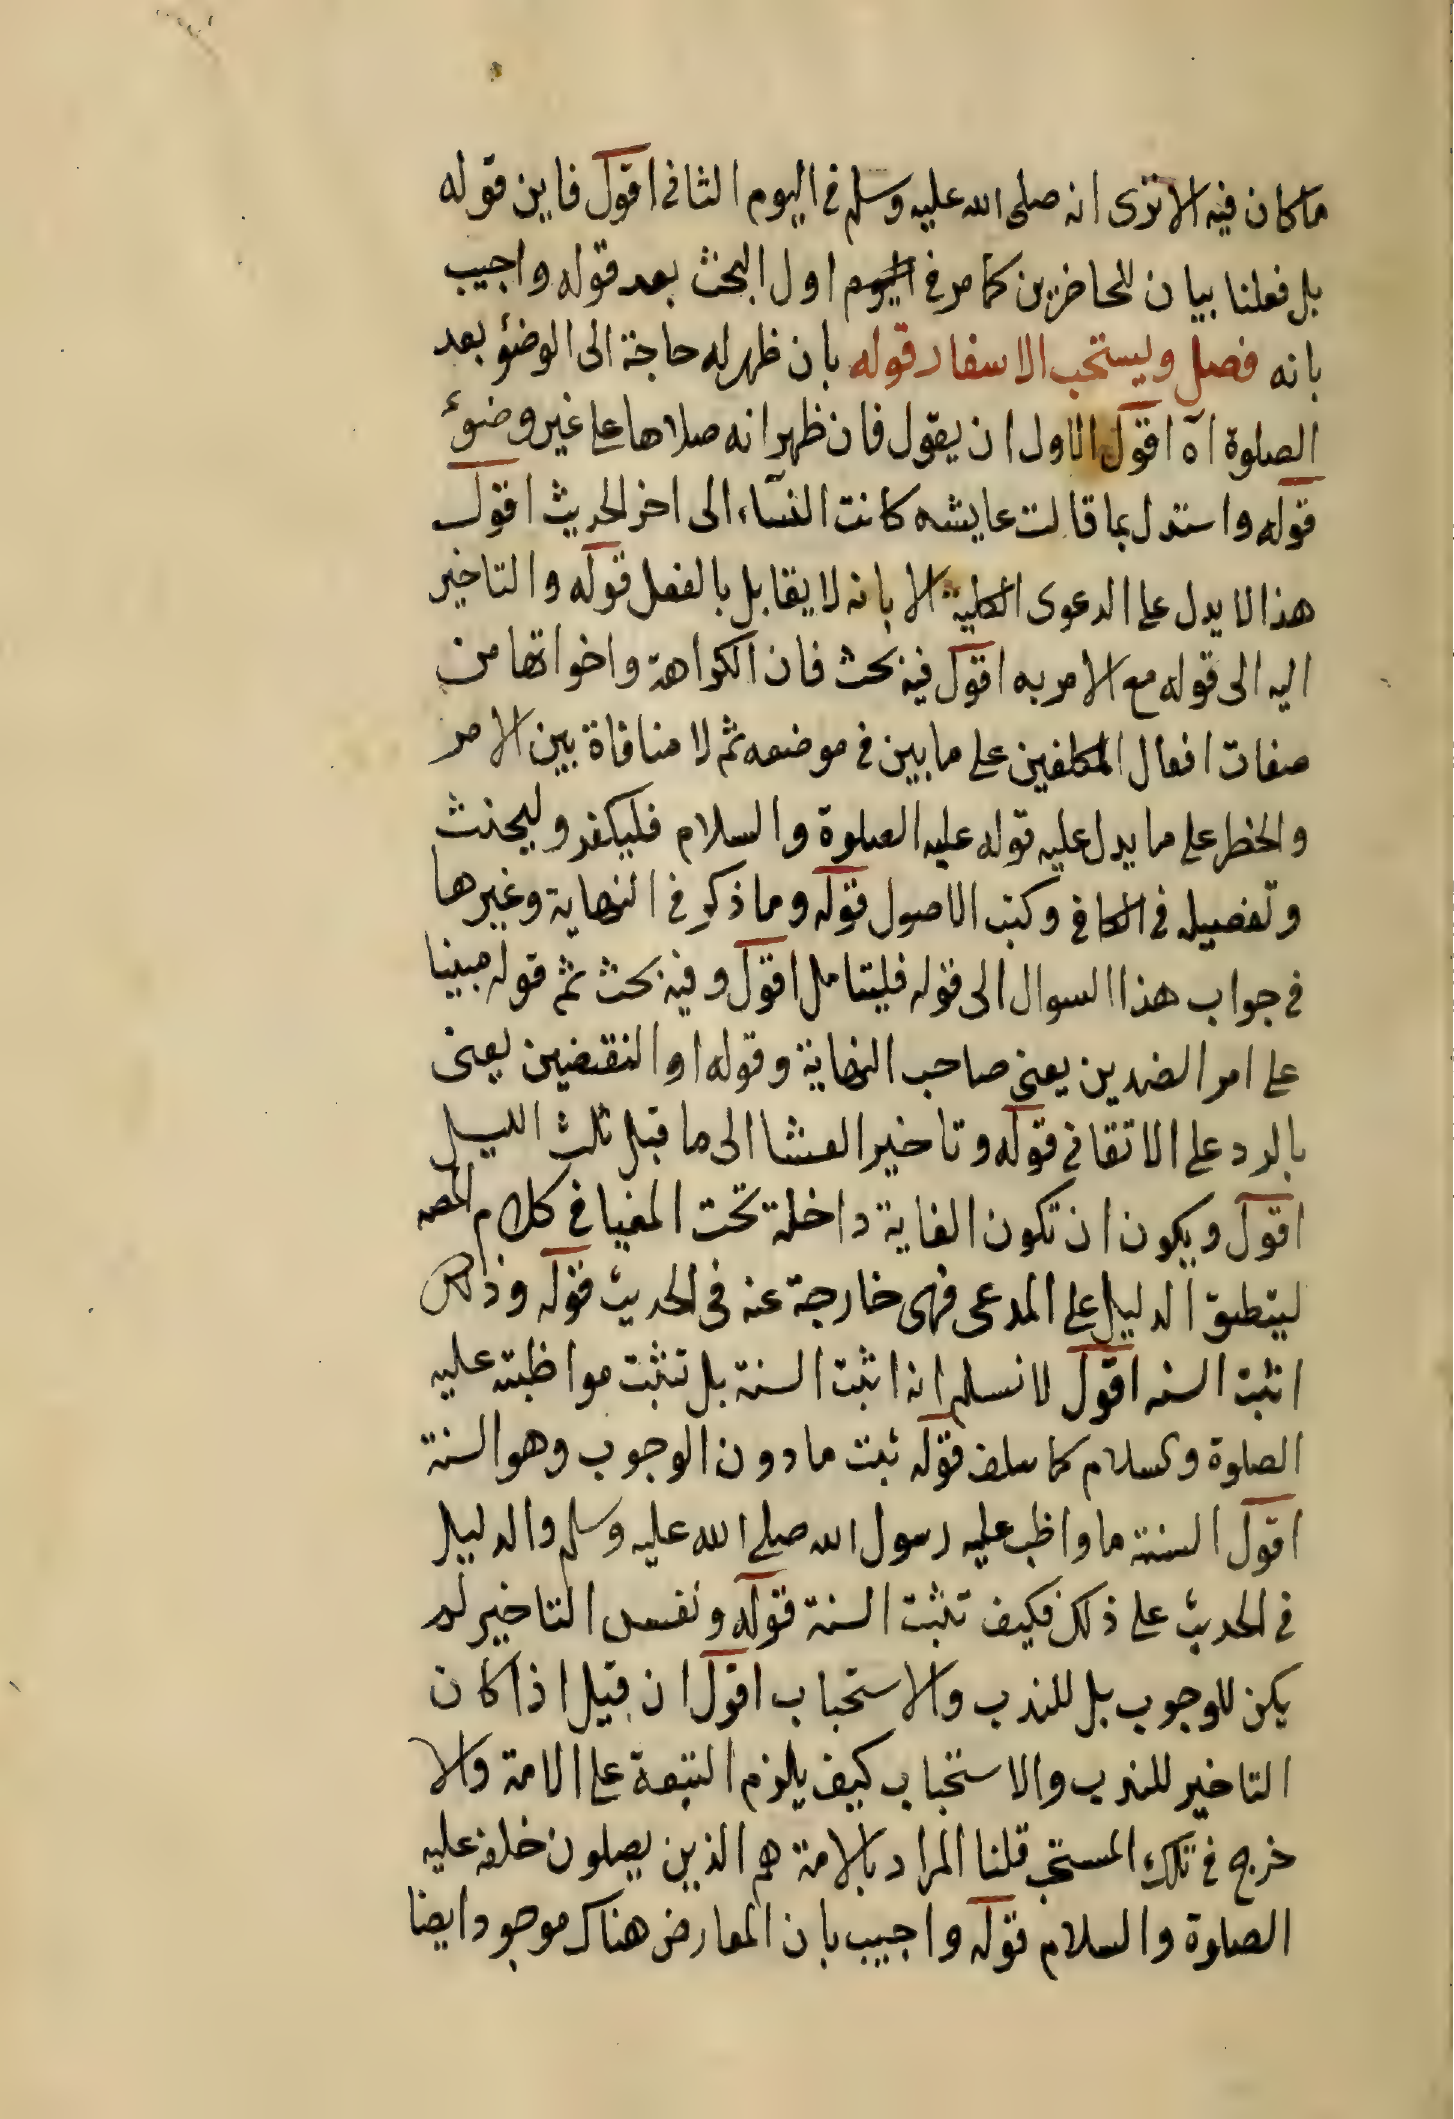 ما كان فيه الا ترى انه صلى الله عليه وسلم في اليوم الثاني اقول فاين قوله
بل فعلنا بيان للحاضرين كما مر في اول البحث بعد قوله واجيب
بانه فصل ويستحب الاسفار قوله بان ظهر له حاجة الى الوضوء بعد
الصلوة آه اقول الاول ان يقول فان ظهر انه صلاها على غير وضوء
قوله واستدل بما قالت عايشه كانت النسآء الى اخر الحديث اقول
هذا لا يدل على الدعوى الكلية الا بانه لا يقابل بالفصل قوله والتاخير
اليه الى قوله مع الامر به اقول فيه بحث فان الكراهة واخواتها من
صفات افعال المكلفين على ما بين في موضعه ثم لا منافاة بين الامر
والخطر على ما يدل عليه قوله عليه الصلوة والسلام فليكفر وليحنث
وتفصيله في الكافي وكتب الاصول قوله وما ذكر في النهاية وغيرها
في جواب هذا السوال الى قوله فليتامل اقول وفيه بحث ثم قوله مبينا
على امر الضدين يعنى صاحب النهاية وقوله او النقضين يعنى
بالرد على الاتقاني قوله وتاخير العشا الى ما قبل ثلث الليل
اقول ويكون ان تكون الغاية داخلة تحت المغيا في كلام المصه
لينطبق الدليل على المدعى فهى خارجة عنه في الحديث قوله وذلك
اثبت السنه اقول لا نسلم انه اثبت السنة بل تثبت مواظبته عليه
الصلوة والسلام كما سلف قوله ثبت ما دون الوجوب وهو السنة
اقول السنة ما واظب عليه رسول الله صلى الله عليه وسلم والدليل
في الحديث على ذلك فكيف تثبت السنة قوله ونفس التاخير لم
يكن للوجوب بل للندب والاستحباب اقول ان قيل اذا كان
التاخير للندب والاستحباب كيف يلزم التبعة على الامة والا
خرج في تلك المستحب قلنا المراد بالامة هم الذين يصلون خلفه عليه
الصلوة والسلام قوله واجيب بان المعارض هناك موجود ايضا